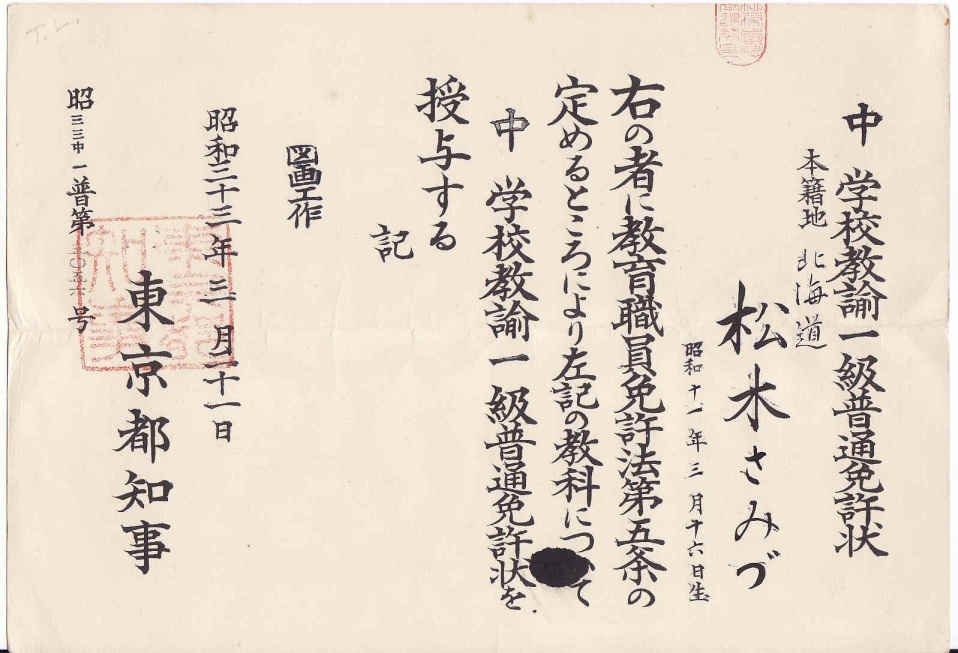 中学校教諭一級普通免許状
本籍地 北海道
松木さみづ
昭和十一年三月十六日生
右の者に教育職員免許法第五条の
定めるところにより左記の教科について
中学校教諭一級普通免許状を
授与する
記
図画工作
昭和三十三年三月二十一日
東京都知事
昭三三中一普第二〇五六号